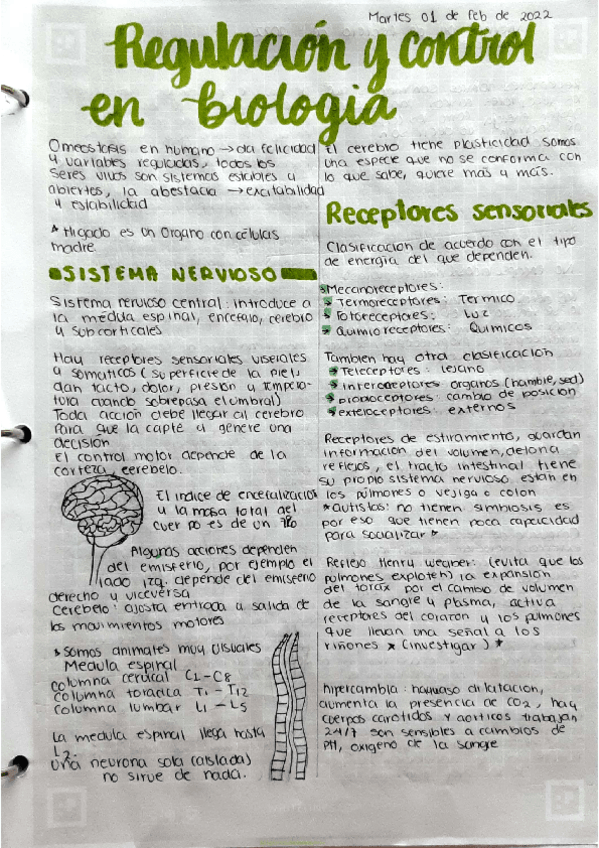 Martes 01 de feb de 2022
Regulación y control
en biologia
Omeostasis en humano → da felicidad
y variables reguladas, todos los
seres vivos son sistemas estables y
abiertos, la abestacia → excitabilidad
y estabilidad
* Higado es un organo con células
madre.
SISTEMA NERVIOSO
Sistema nervioso central: introduce a
la médula espinal, encefalo, cerebro
y subcorticales
Hay receptores sensoriales viserales
y somaticos (superficie de la piel,
dan tacto, dolor, presion y tempera-
tura cuando sobrepasa el umbral)
Toda acción debe llegar al cerebro
para que la capte y genere una
decisión
El control motor depende de la
corteza, cerebelo.
El indice de encefalización
y la masa total del
cuerpo es de un
Algunas acciones dependen
del emisferio, por ejemplo el
lado izq. depende del emisferio
derecho y viceversa
Cerebelo: ajusta entrada y salida de
los movimientos motores
* Somos animales muy visuales
Medula espinal
Columna cervical C1-C8
Columna toracica T1-T12
Columna lumbar L1-L5
La medula espinal llega hasta
L2.
Una neurona sola (aislada)
no sirve de nada.
El cerebro tiene plasticidad somos
una especie que no se conforma con
lo que sabe, quiere más y más.
Receptores sensoriales
Clasificacion de acuerdo con el tipo
de energia del que dependen.
Mecanoreceptores:
Termoreceptores: Termico
Fotoreceptores: Luz
Quimioreceptores: Quimicos
Tambien hay otra clasificación
Teleceptores: lejano
Interoceptores organos (hambre, sed)
propioceptores: cambio de posicion
exteloceptores: externos
Receptores de estiramiento, guardan
informacion del volumen, detona
reflejos, el tracto intestinal tiene
su propio sistema nervioso, estan en
los pulmones o vejiga o colon
*autistas: no tienen simbiosis es
por eso que tienen poca capacidad
para socializar *
Reflejo Henry Wegner: (evita que los
pulmones exploten) la expansión
del torax por el cambio de volumen
de la sangre y plasma, activa
receptores del corazon y los pulmones
que llevan una señal a los
riñones * (investigar) *
hipercambia: dilatacion,
aumenta la presencia de CO2, hay
cuerpos carotidos y aorticos trabajan
24/7 son sensibles a cambios de
PH, oxigeno de la sangre